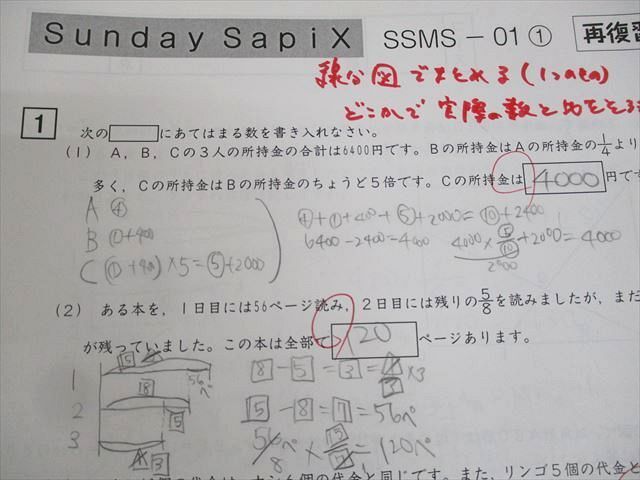 Sunday SapiX SSMS－01① 再復習
線分図でまとめる
どこかで実際の数と比をそろ
1
次の にあてはまる数を書き入れなさい。
(1) A，B，Cの3人の所持金の合計は6400円です。Bの所持金はAの所持金の1/4より
多く，Cの所持金はBの所持金のちょうど5倍です。Cの所持金は 4000 円で
A ④
B ①+400
C (①+400)×5=⑤+2000
④+①+400+⑤+2000=⑩+2400
6400-2400=4000
4000×⑤/⑩+2000=4000
2000
(2) ある本を，1日目には56ページ読み，2日目には残りの5/8を読みましたが，まだ
が残っていました。この本は全部で 120 ページあります。
1
2
3
15
56ペ
18
5
3
8 - 5 = 3 =
×3
15 - 8 = 7 = 56ペ
56ペ × 15/7 = 120ペ
8
個の代金と同じです。また，リンゴ5個の代金と